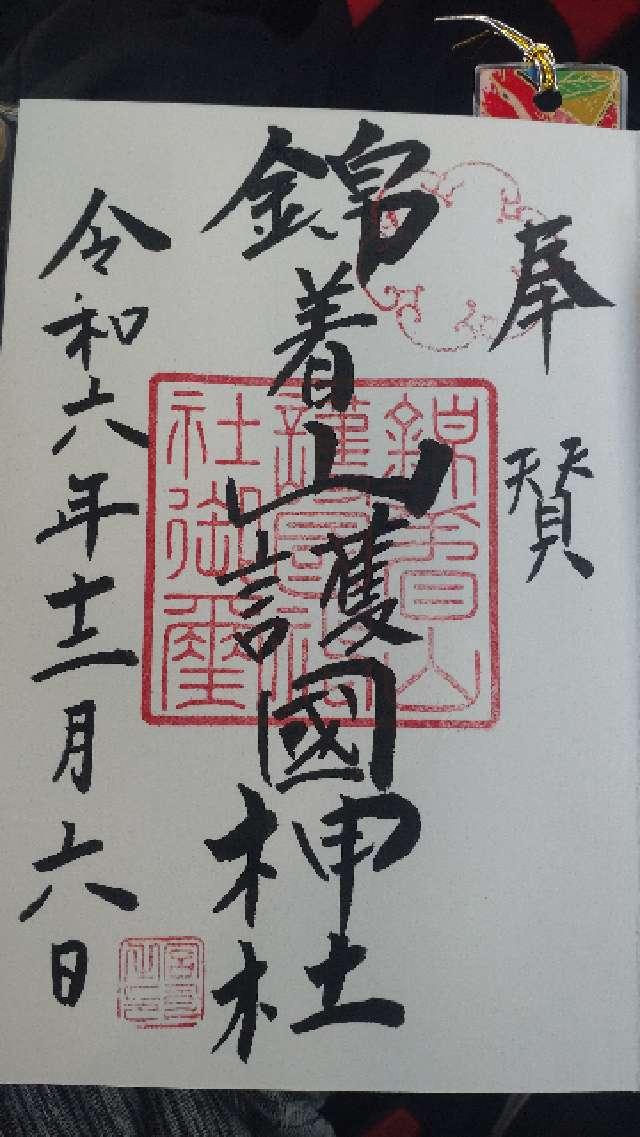 奉賛
錦着山護國神社
錦着山護國神社御璽
令和六年十二月六日